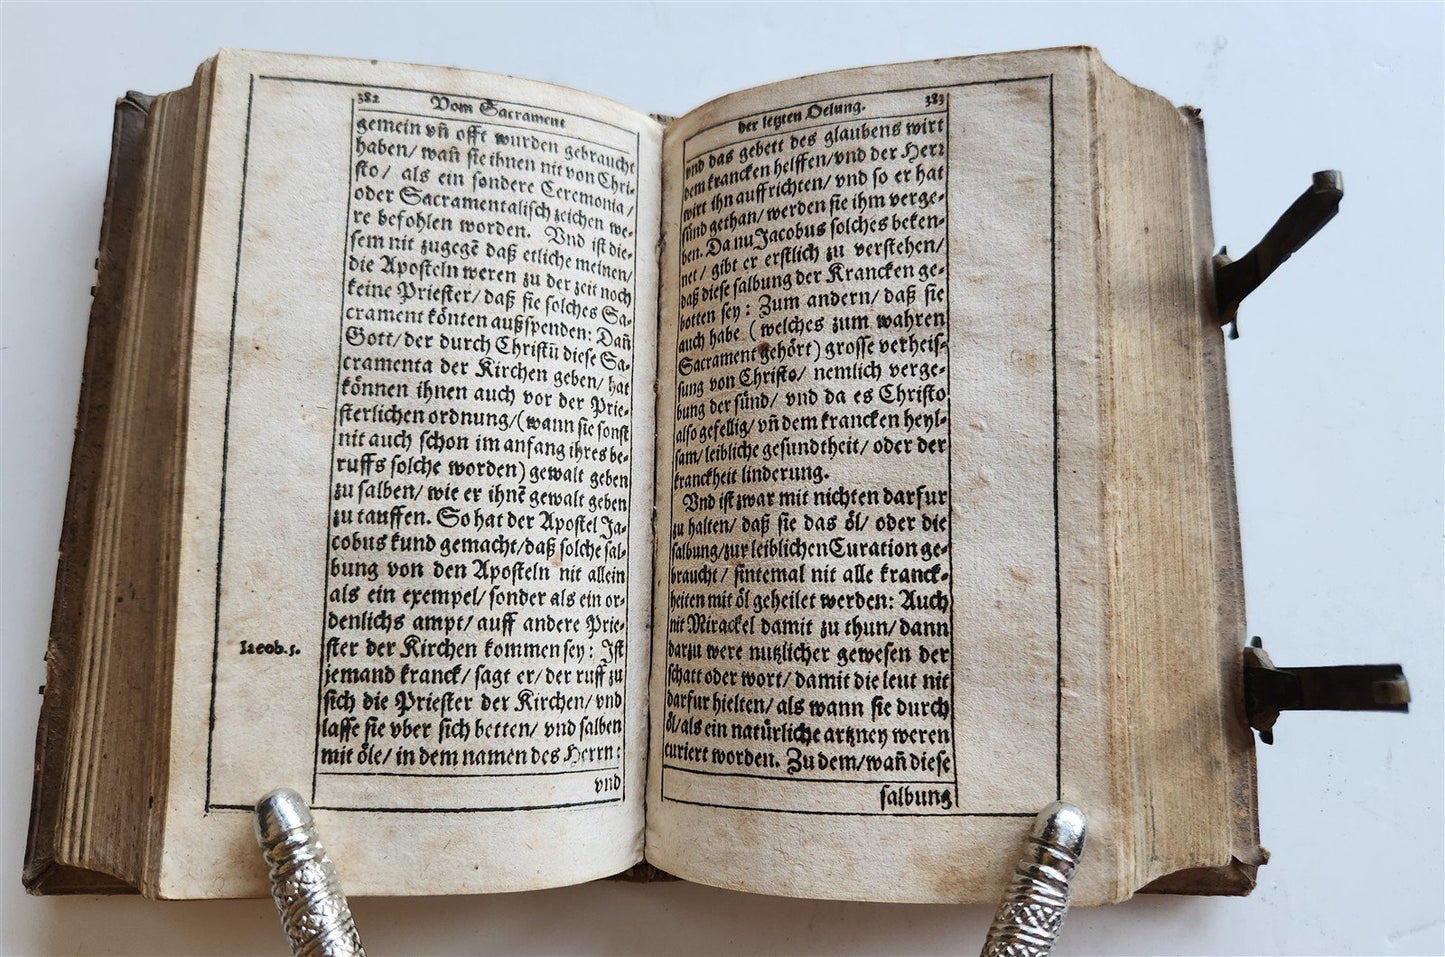 382
Vom Sacrament
gemein vñ offt wurden gebraucht
haben/ wañ sie ihnen nit von Chri-
sto/ als ein sondere Ceremonia/
oder Sacramentalisch zeichen we-
re befohlen worden. Vnd ist die-
sem nit zugegē daß etliche meinen/
die Aposteln weren zu der zeit noch
keine Priester/ daß sie solches Sa-
crament könten außspenden: Dañ
Gott/ der durch Christū diese Sa-
cramenta der Kirchen geben/ hat
können ihnen auch vor der Prie-
sterlichen ordnung/ (wann sie sonst
nit auch schon im anfang ihres be-
ruffs solche worden) gewalt geben
zu salben/ wie er ihnē gewalt geben
zu tauffen. So hat der Apostel Ja-
cobus kund gemacht/ daß solche sal-
bung von den Aposteln nit allein
als ein exempel/ sonder als ein or-
denlichs ampt/ auff andere Prie-
Iacob. 5.
ster der Kirchen kommen sey: Ist
jemand kranck/ sagt er/ der ruff zu
sich die Priester der Kirchen/ vnd
lasse sie vber sich betten/ vnd salben
mit öle/ in dem namen des Herrn:
vnd
der letzten Oelung.
383
vnd das gebett des glaubens wirt
dem krancken helffen/ vnd der Herr
wirt ihn auffrichten/ vnd so er hat
sünd gethan/ werden sie ihm verge-
ben. Da nu Jacobus solches beken-
net/ gibt er erstlich zu verstehen/
daß diese salbung der Krancken ge-
botten sey: Zum andern/ daß sie
auch habe (welches zum wahren
Sacrament gehört) grosse verheis-
sung von Christo/ nemlich verge-
bung der sünd/ vnd da es Christo
also gefellig/ vñ dem krancken heyl-
sam/ leibliche gesundtheit/ oder der
kranckheit linderung.
Vnd ist zwar mit nichten darfur
zu halten/ daß sie das öl/ oder die
salbung/ zur leiblichen Curation ge-
braucht/ sintemal nit alle kranck-
heiten mit öl geheilet werden: Auch
nit Mirackel damit zu thun/ dann
darzu were nutzlicher gewesen der
schatt oder wort/ damit die leut nit
darfur hielten/ als wann sie durch
öl/ als ein natürliche artzney weren
curiert worden. Zu dem/ wañ diese
salbung